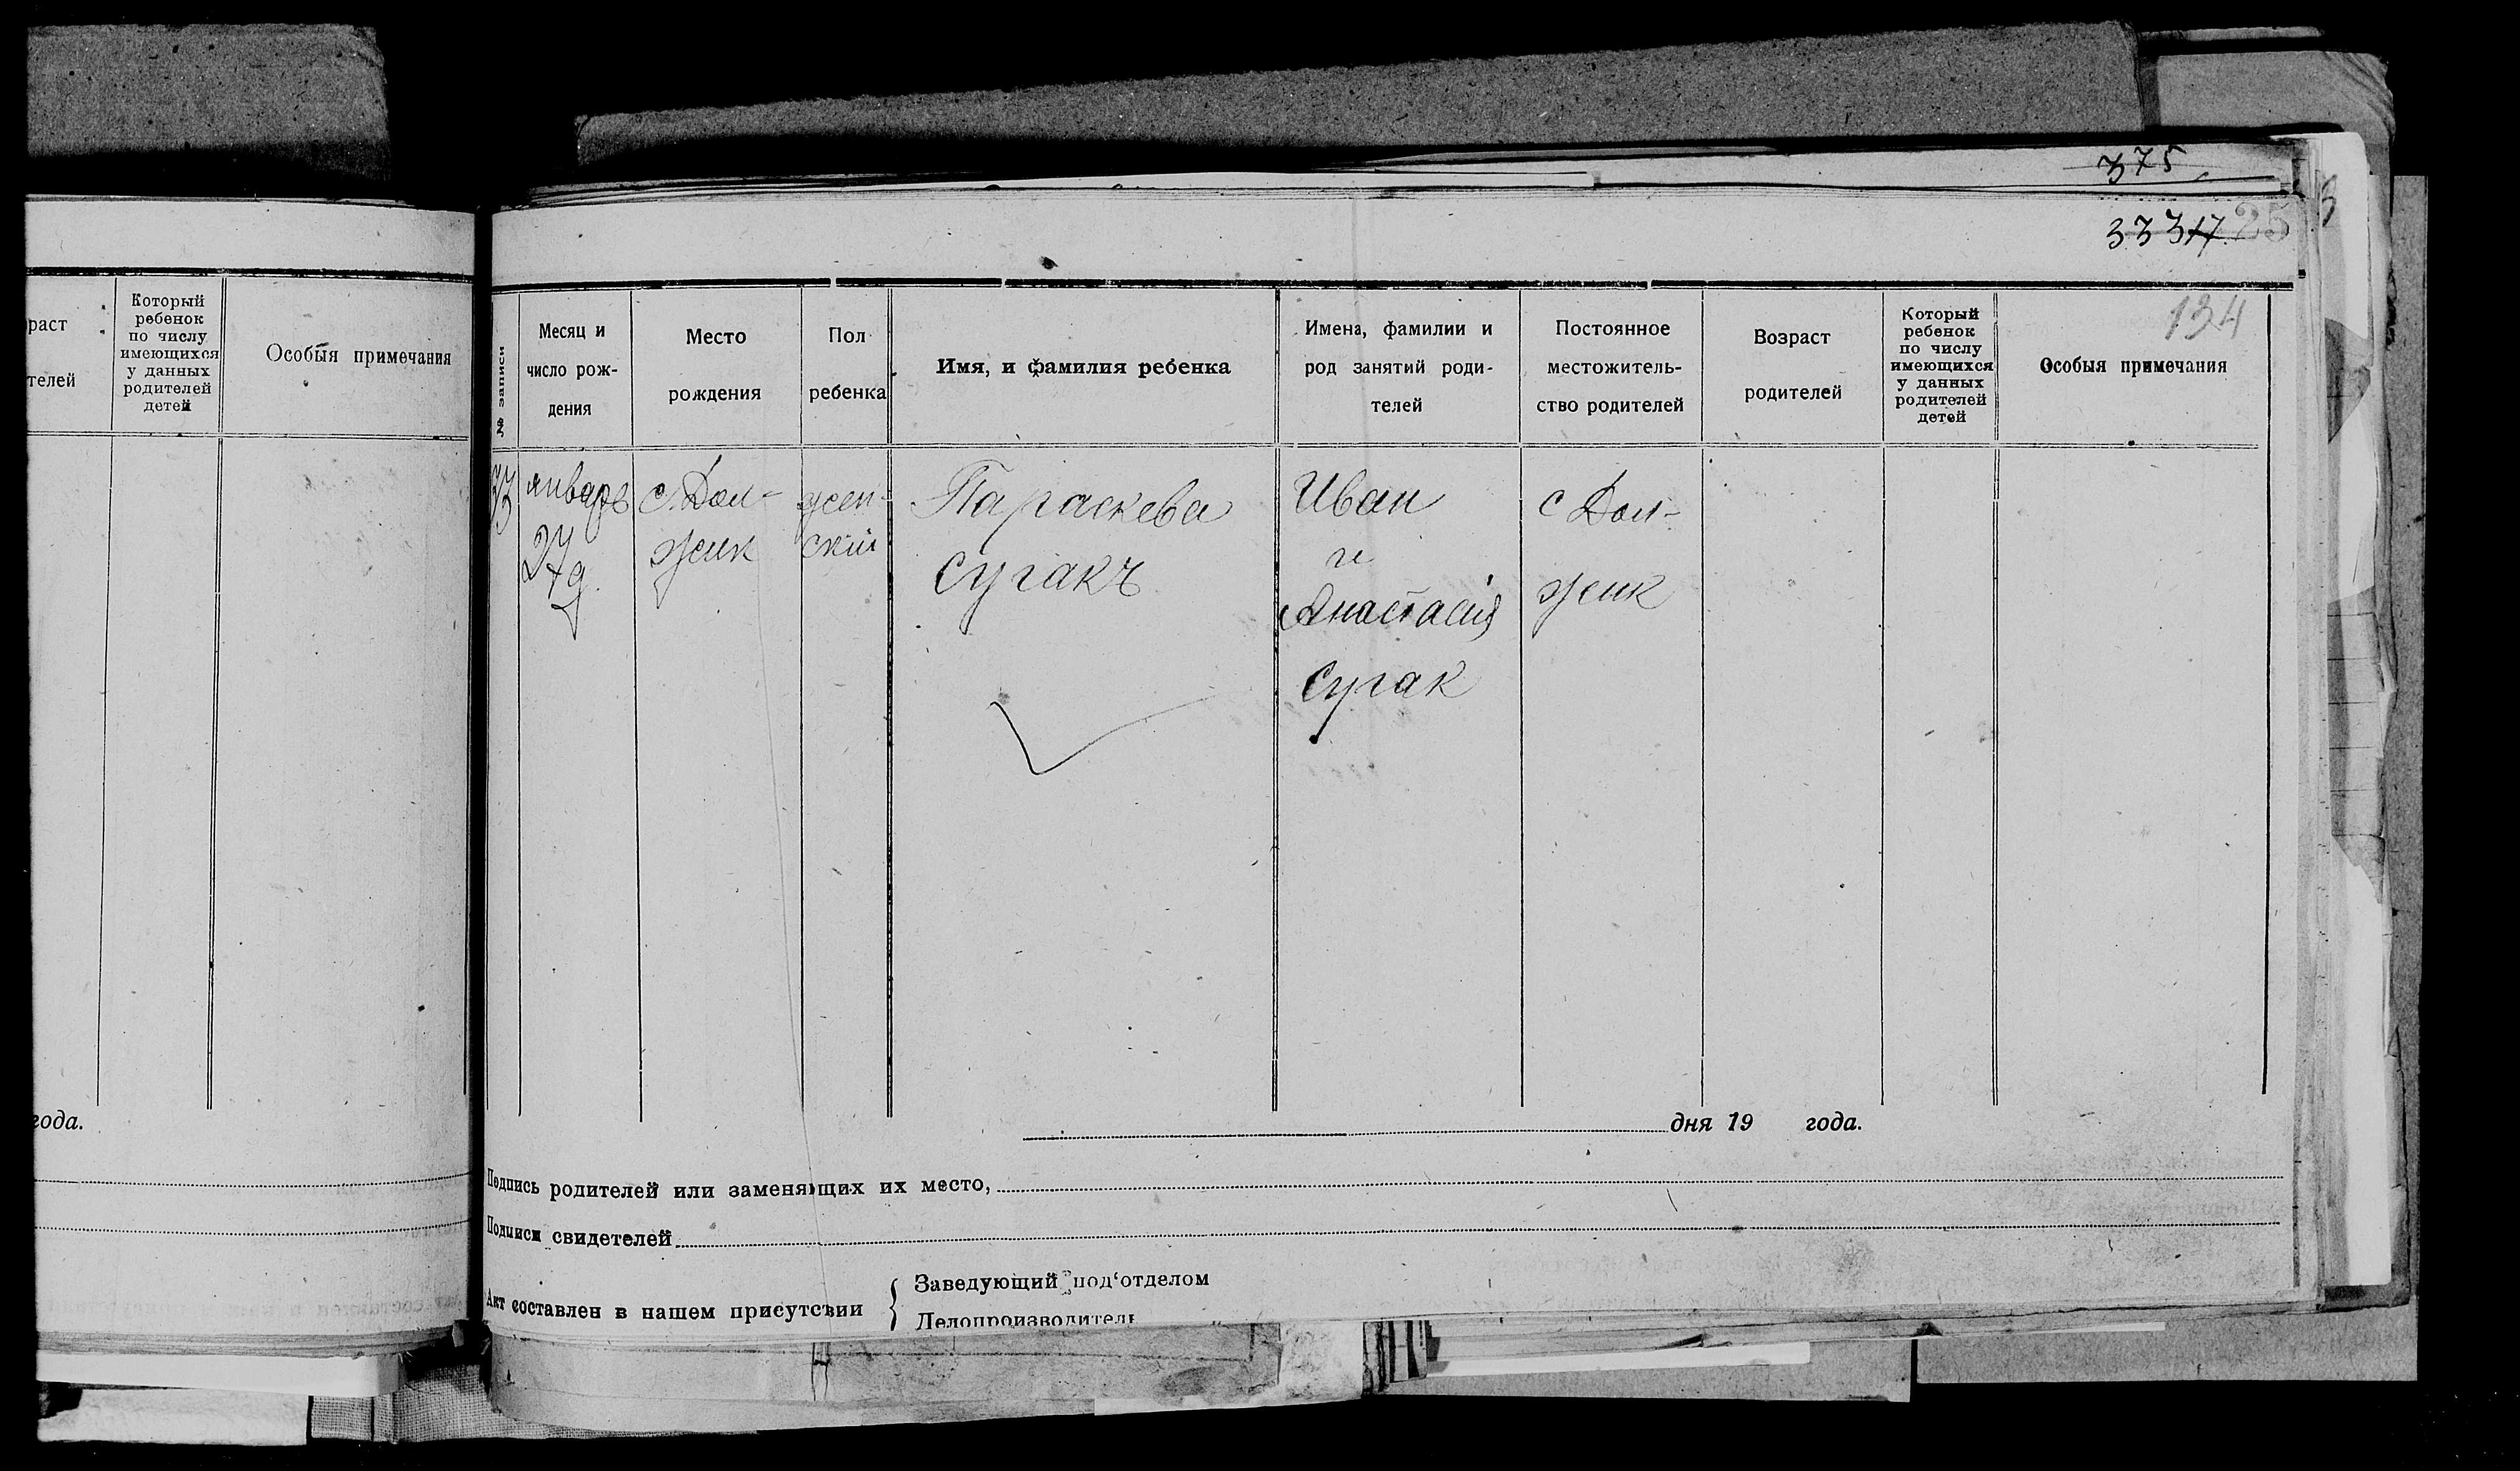 375
33317 25
134
раст
телей
Который
ребенок
по числу
имеющихся
у данных
родителей
детей
Особыя примечания
года.
№ записи
Месяц и
число рож-
дения
Место
рождения
Пол
ребенка
Имя, и фамилия ребенка
Имена, фамилии и
род занятий роди-
телей
Постоянное
местожитель-
ство родителей
Возраст
родителей
Который
ребенок
по числу
имеющихся
у данных
родителей
детей
Особыя примечания
33
январь
27 д.
с. Дол-
жик
жен-
ский
Параскева
Сугакъ
Иван
и
Анастасия
Сугак
с Дол-
жик
дня 19 года.
Подпись родителей или заменяющих их место,
Подписи свидетелей
Акт составлен в нашем присутствии
Заведующий подотделом
Делопроизводитель